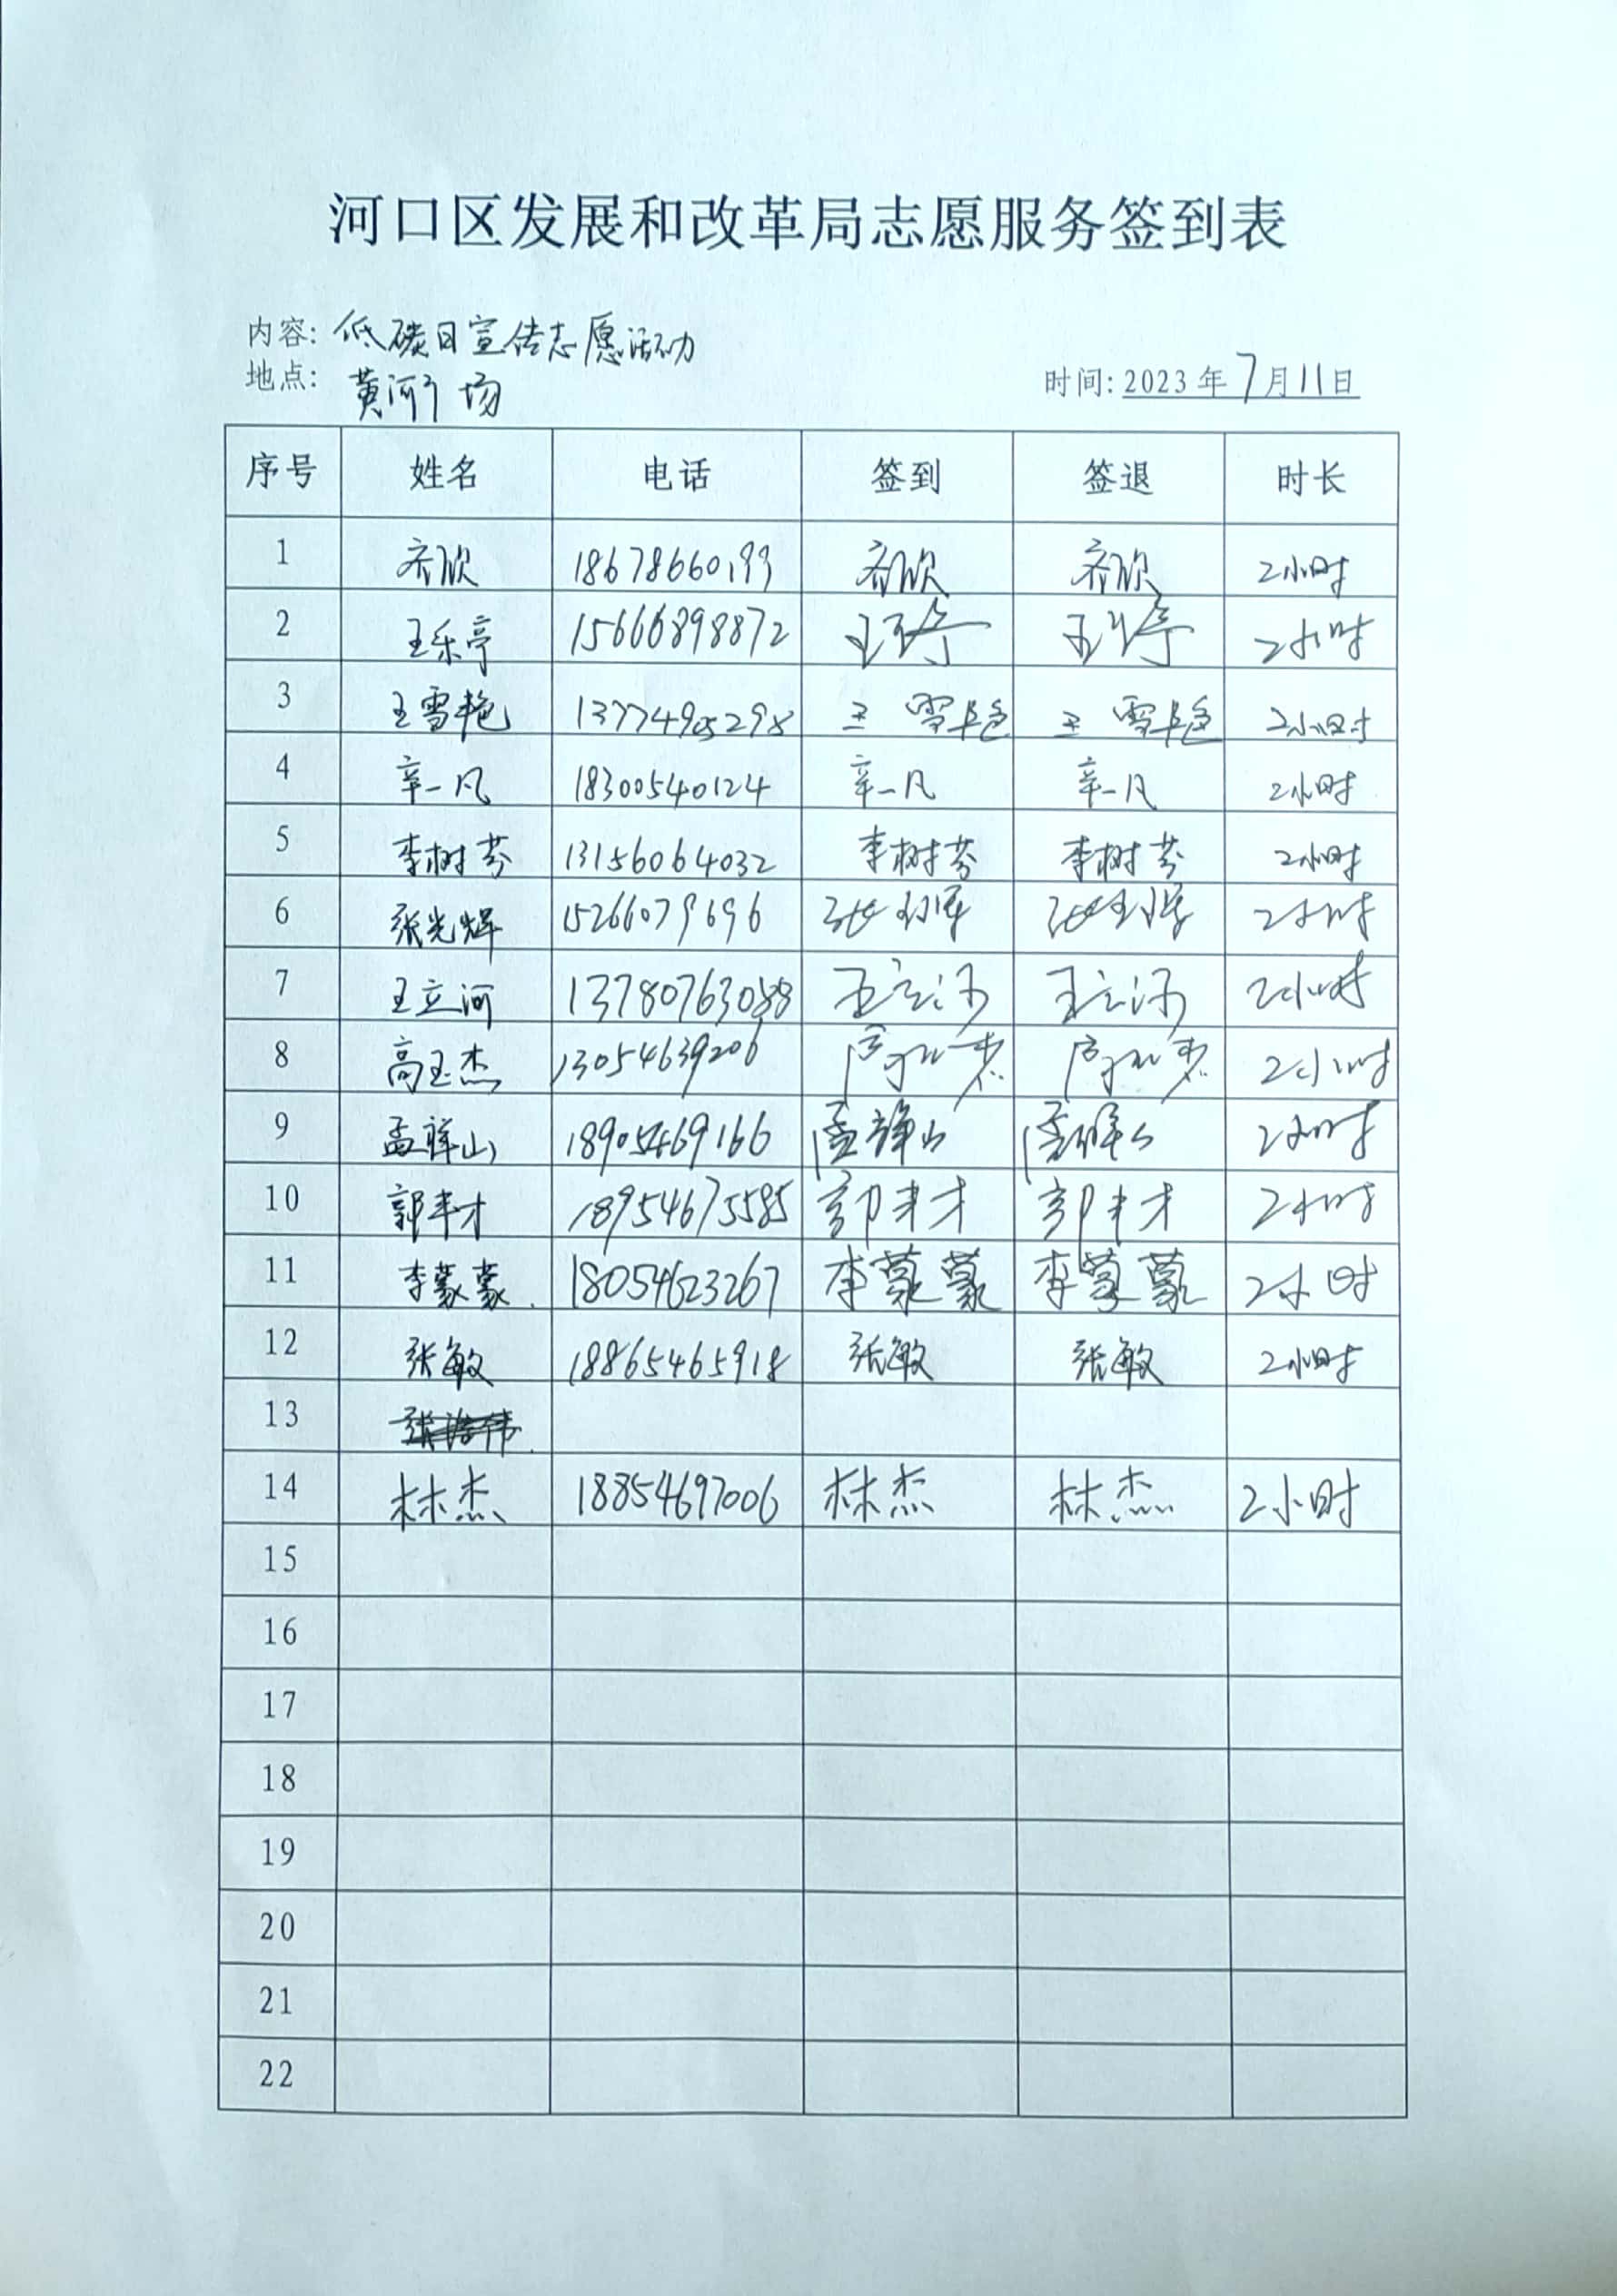 河口区发展和改革局志愿服务签到表
内容: 低碳日宣传志愿活动
地点: 黄河广场
时间: 2023年7月11日
序号 姓名 电话 签到 签退 时长
1 齐欣 18678660199 齐欣 齐欣 2小时
2 王乐亭 15666898872 2小时
3 王雪艳 13774905298 王雪艳 王雪艳 2小时
4 辛一凡 18300540124 辛一凡 辛一凡 2小时
5 李树芬 13156064032 李树芬 李树芬 2小时
6 张光辉 15266079696 张光辉 张光辉 2小时
7 王立河 13780763088 王立河 王立河 2小时
8 高玉杰 13054639206 高玉杰 高玉杰 2小时
9 孟祥山 18905469166 孟祥山 孟祥山 2小时
10 郭丰才 18954675585 郭丰才 郭丰才 2小时
11 李蒙蒙 18054623267 李蒙蒙 李蒙蒙 2小时
12 张敏 18865465918 张敏 张敏 2小时
13
14 林杰 18854697006 林杰 林杰 2小时
15
16
17
18
19
20
21
22